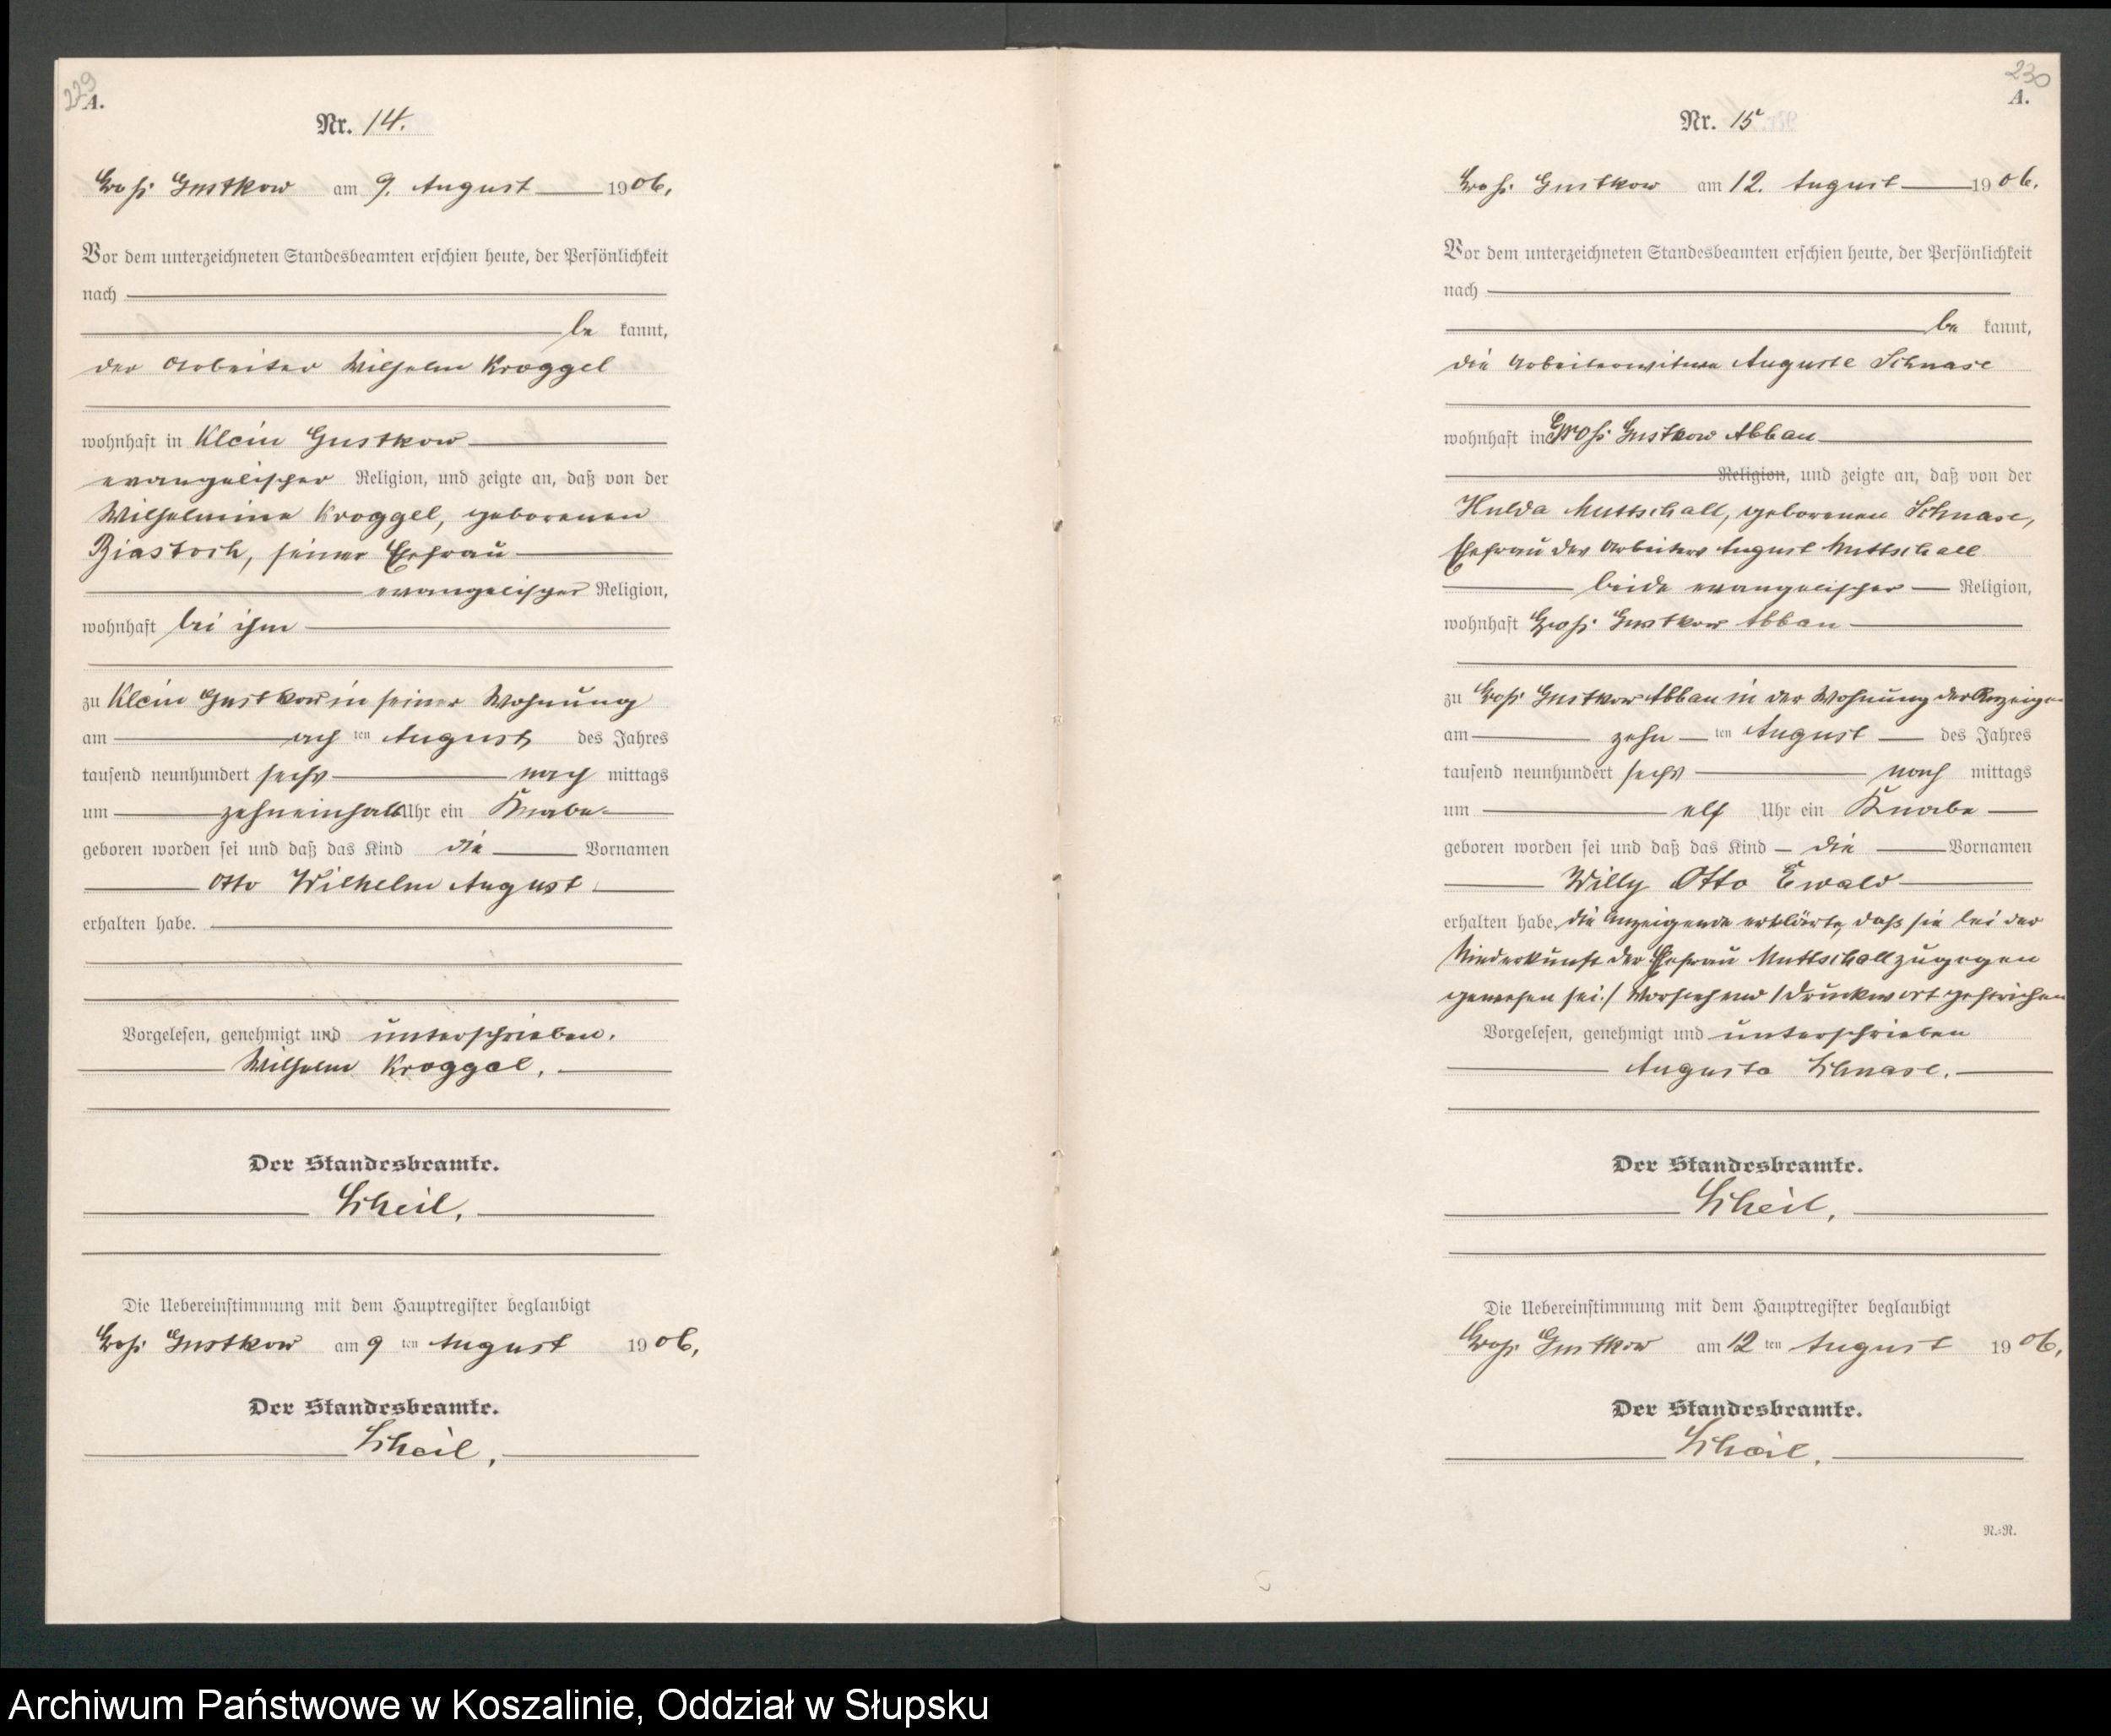 229
A.
Nr. 14.
Groß Gustkow am 9. August 1906,
Vor dem unterzeichneten Standesbeamten erschien heute, der Persönlichkeit
nach
be kannt,
der Arbeiter Wilhelm Kroggel
wohnhaft in Klein Gustkow
evangelischer Religion, und zeigte an, daß von der
Wilhelmine Kroggel, geborenen
Biastoch, seiner Ehefrau
evangelischer Religion,
wohnhaft bei ihm
zu Klein Gustkow in seiner Wohnung
am ach ten August des Jahres
tausend neunhundert sechs nach mittags
um zehneinhalb Uhr ein Knabe
geboren worden sei und daß das Kind die Vornamen
Otto Wilhelm August
erhalten habe.
Vorgelesen, genehmigt und unterschrieben.
Wilhelm Kroggel.
Der Standesbeamte.
Scheil.
Die Uebereinstimmung mit dem Hauptregister beglaubigt
Groß Gustkow am 9 ten August 1906,
Der Standesbeamte.
Scheil.
230
A.
Nr. 15
Groß Gustkow am 12. August 1906.
Vor dem unterzeichneten Standesbeamten erschien heute, der Persönlichkeit
nach
be kannt,
die Arbeiterwitwe Auguste Schnase
wohnhaft in Groß Gustkow Abbau
Religion, und zeigte an, daß von der
Hulda Muttschall, geborenen Schnase,
Ehefrau des Arbeiters August Muttschall
beide evangelischer Religion,
wohnhaft Groß Gustkow Abbau
zu Groß Gustkow Abbau in der Wohnung der Anzeigen
am zehn ten August des Jahres
tausend neunhundert sechs nach mittags
um elf Uhr ein Knabe
geboren worden sei und daß das Kind die Vornamen
Willy Otto Ewald
erhalten habe. Die Anzeigende erklärte, daß sie bei der
Niederkunft der Ehefrau Muttschall zugegen
gewesen sei./ Vorstehend 1 Druckwort gestrichen
Vorgelesen, genehmigt und unterschrieben
Auguste Schnase.
Der Standesbeamte.
Scheil.
Die Uebereinstimmung mit dem Hauptregister beglaubigt
Groß Gustkow am 12 ten August 1906,
Der Standesbeamte.
Scheil.
N.=N.
Archiwum Państwowe w Koszalinie, Oddział w Słupsku